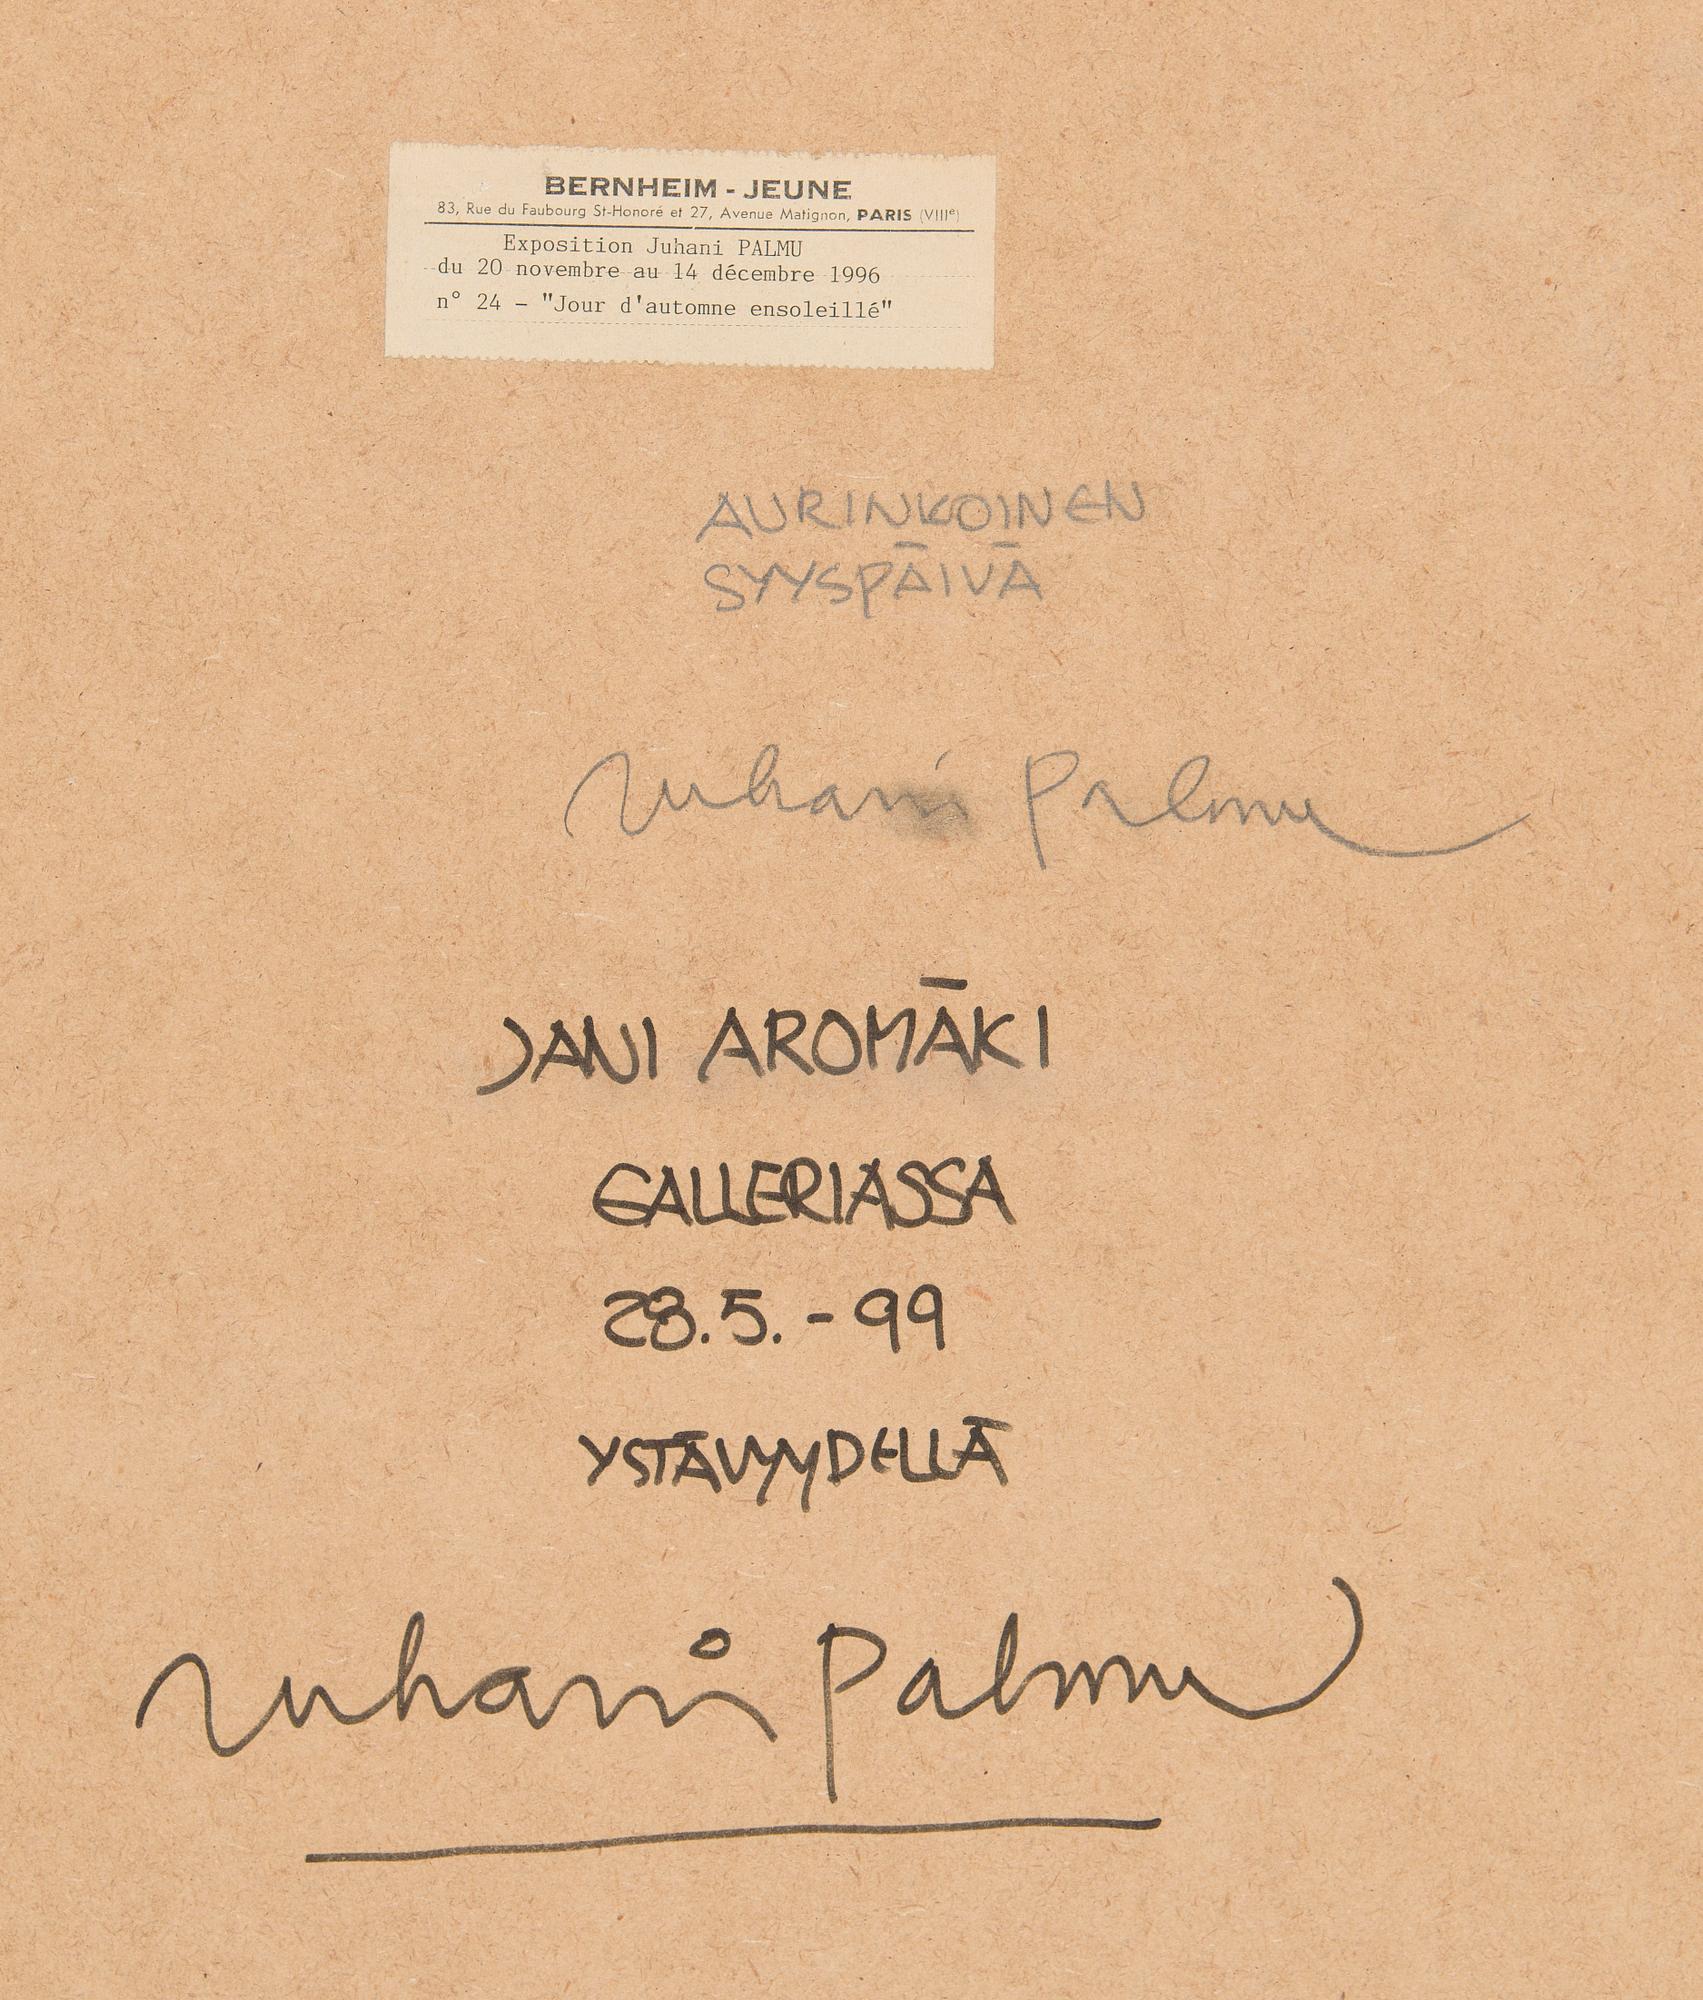 BERNHEIM - JEUNE
83, Rue du Faubourg St-Honoré et 27, Avenue Matignon, PARIS (VIIIe)
Exposition Juhani PALMU
du 20 novembre au 14 décembre 1996
n° 24 - "Jour d'automne ensoleillé"
AURINKOINEN
SYYSPÄIVÄ
Juhani Palmu
JANI AROMÄKI
GALLERIASSA
28.5.-99
YSTÄVYYDELLÄ
Juhani Palmu